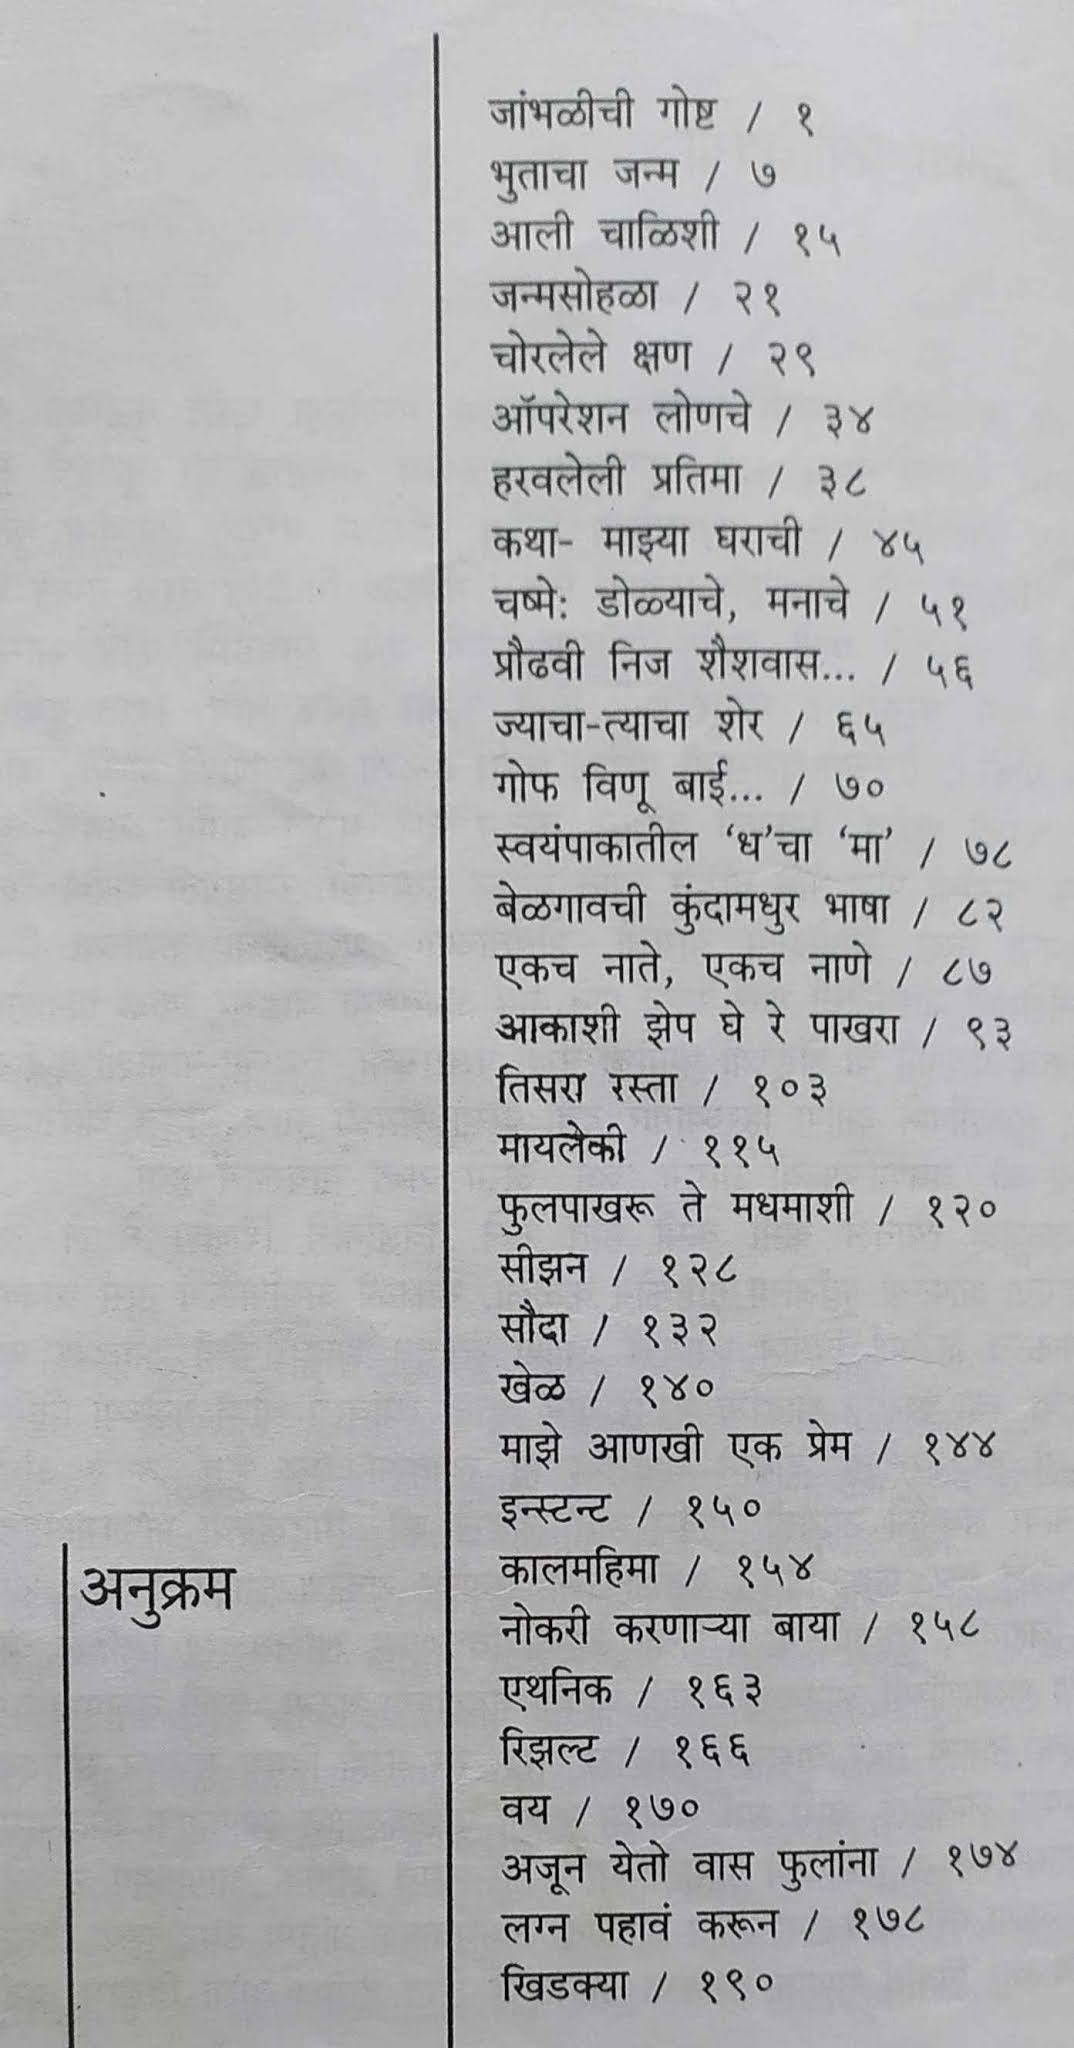 जांभळीची गोष्ट / १
भुताचा जन्म / ७
आली चाळिशी / १५
जन्मसोहळा / २१
चोरलेले क्षण / २९
ऑपरेशन लोणचे / ३४
हरवलेली प्रतिमा / ३८
कथा- माझ्या घराची / ४५
चष्मे: डोळ्याचे, मनाचे / ५१
प्रौढवी निज शैशवास... / ५६
ज्याचा-त्याचा शेर / ६५
गोफ विणू बाई... / ७०
स्वयंपाकातील ‘ध’चा ‘मा’ / ७८
बेळगावची कुंदामधुर भाषा / ८२
एकच नाते, एकच नाणे / ८७
आकाशी झेप घे रे पाखरा / ९३
तिसरा रस्ता / १०३
मायलेकी / ११५
फुलपाखरू ते मधमाशी / १२०
सीझन / १२८
सौदा / १३२
खेळ / १४०
माझे आणखी एक प्रेम / १४४
इन्स्टन्ट / १५०
कालमहिमा / १५४
नोकरी करणाऱ्या बाया / १५८
एथनिक / १६३
रिझल्ट / १६६
वय / १७०
अजून येतो वास फुलांना / १७४
लग्न पहावं करून / १७८
खिडक्या / १९०
अनुक्रम